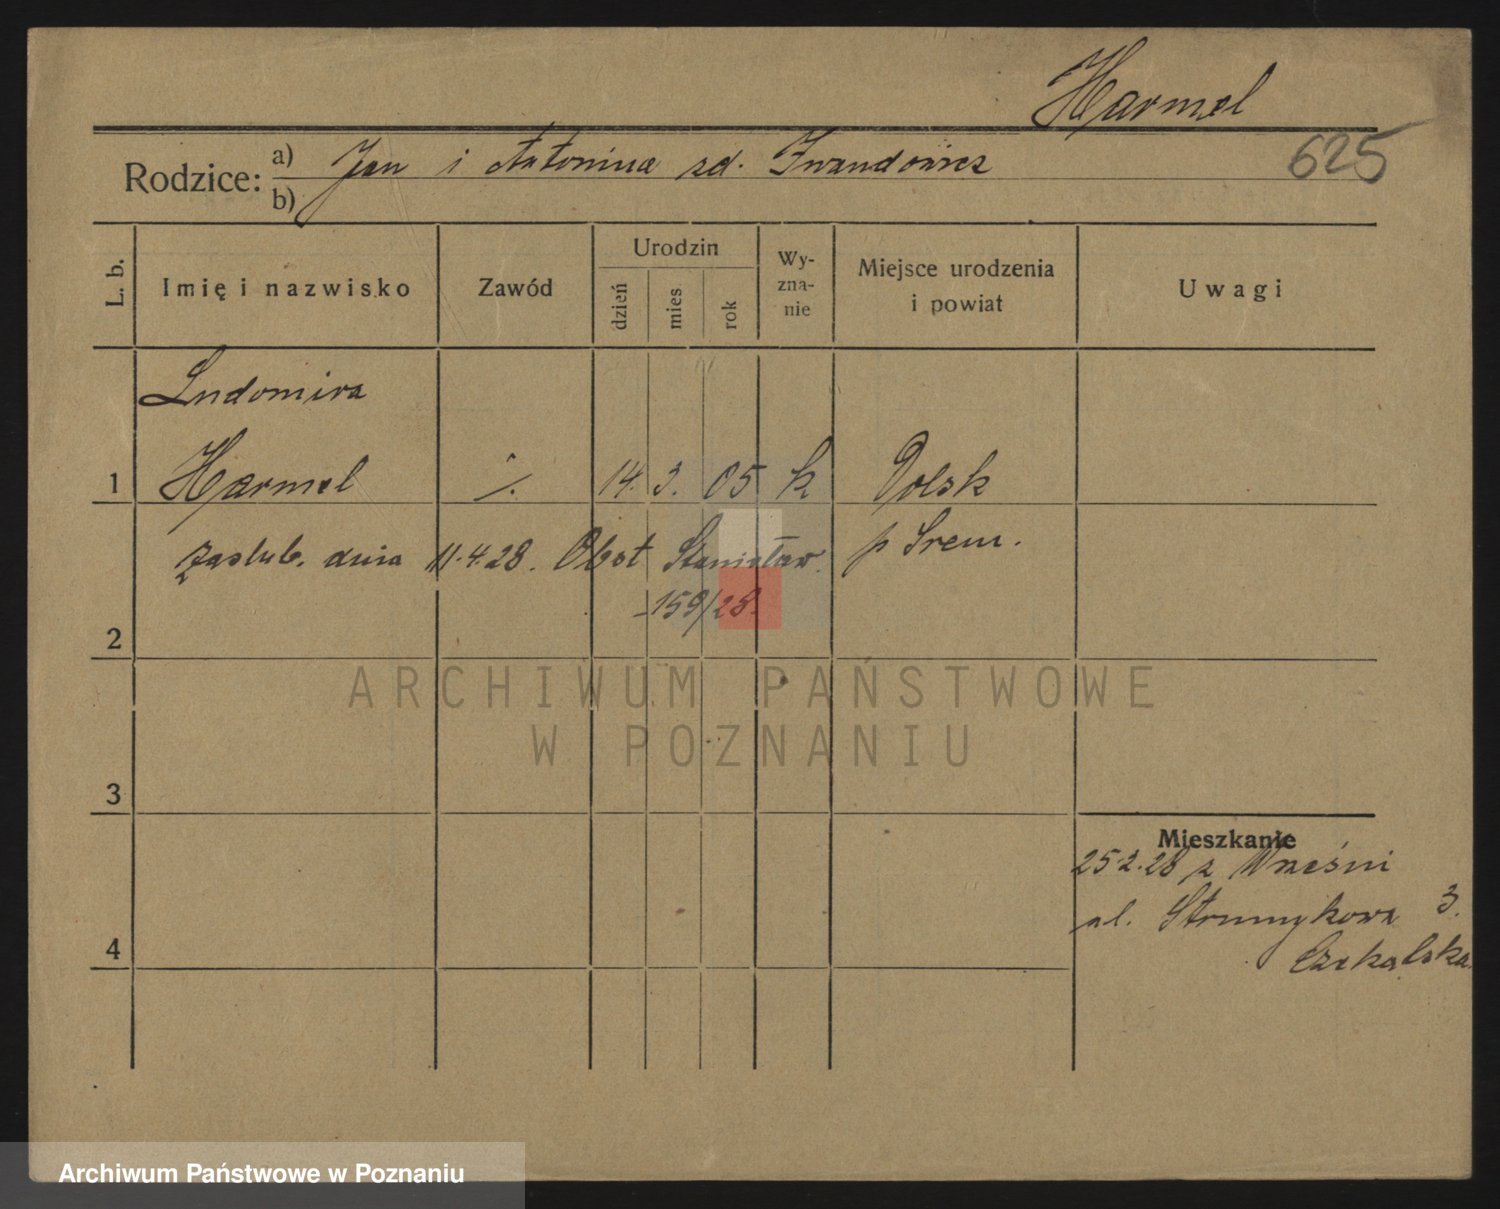 Harmel
625
Rodzice: a) Jan i Antonina zd.
b)
L. b.
Imię i nazwisko
Zawód
Urodzin
dzień
mies
rok
Wy-
zna-
nie
Miejsce urodzenia
i powiat
Uwagi
Ludomira
1 Harmel ·/. 14. 3. 05 k Dolsk
zaślub. dnia 11.4.28. Obst Stanisław. p Śrem.
159/28.
2
ARCHIWUM PAŃSTWOWE
W POZNANIU
3
Mieszkanie
25.2.28 z Wrześni
ul. Strumykowa 3.
Czekalska
4
Archiwum Państwowe w Poznaniu